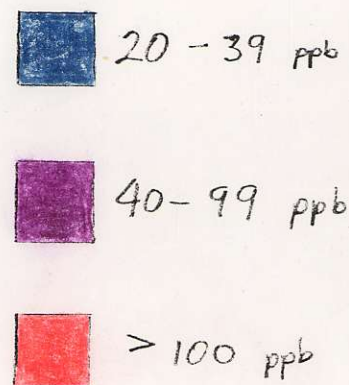 20 - 39 ppb
40 - 99 ppb
> 100 ppb